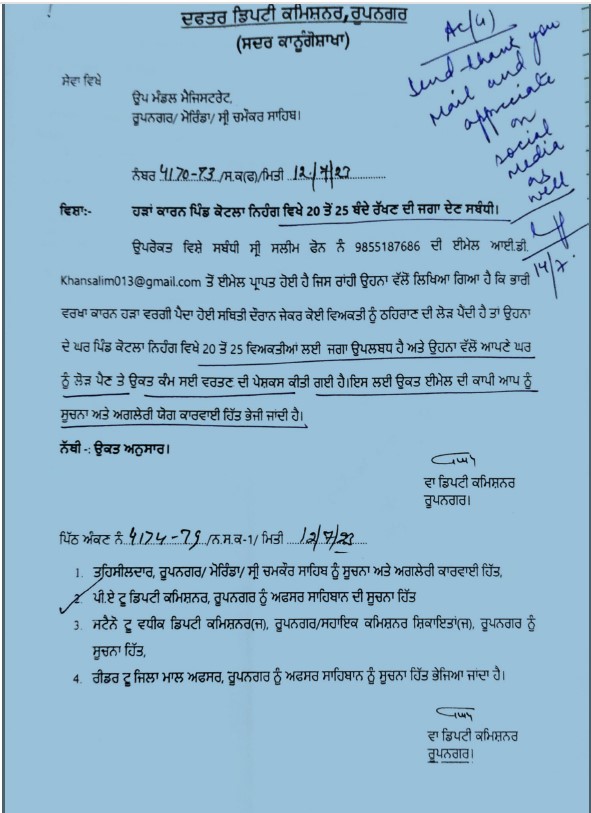 ਦਫਤਰ ਡਿਪਟੀ ਕਮਿਸ਼ਨਰ,ਰੂਪਨਗਰ
(ਸਦਰ ਕਾਨੂੰਗੋਸ਼ਾਖਾ)
AC(G)
Send thank you
mail and
appreciate
on
social
media
as
well
14/7.
ਸੇਵਾ ਵਿਖੇ
ਉਪ ਮੰਡਲ ਮੈਜਿਸਟਰੇਟ,
ਰੂਪਨਗਰ/ ਮੋਰਿੰਡਾ/ ਸ੍ਰੀ ਚਮਕੌਰ ਸਾਹਿਬ।
ਨੰਬਰ 4170-73 /ਸ.ਕ(ਫ)/ਮਿਤੀ 12/7/23
ਵਿਸ਼ਾ:- ਹੜਾਂ ਕਾਰਨ ਪਿੰਡ ਕੋਟਲਾ ਨਿਹੰਗ ਵਿਖੇ 20 ਤੋਂ 25 ਬੰਦੇ ਰੱਖਣ ਦੀ ਜਗਾ ਦੇਣ ਸਬੰਧੀ।
ਉਪਰੋਕਤ ਵਿਸ਼ੇ ਸਬੰਧੀ ਸ੍ਰੀ ਸਲੀਮ ਫੋਨ ਨੰ 9855187686 ਦੀ ਈਮੇਲ ਆਈ.ਡੀ.
Khansalim013@gmail.com ਤੋਂ ਈਮੇਲ ਪ੍ਰਾਪਤ ਹੋਈ ਹੈ ਜਿਸ ਰਾਂਹੀ ਉਹਨਾ ਵੱਲੋਂ ਲਿਖਿਆ ਗਿਆ ਹੈ ਕਿ ਭਾਰੀ
ਵਰਖਾ ਕਾਰਨ ਹੜਾ ਵਰਗੀ ਪੈਦਾ ਹੋਈ ਸਥਿਤੀ ਦੌਰਾਨ ਜੇਕਰ ਕੋਈ ਵਿਅਕਤੀ ਨੂੰ ਠਹਿਰਾਣ ਦੀ ਲੋੜ ਪੈਂਦੀ ਹੈ ਤਾਂ ਉਹਨਾ
ਦੇ ਘਰ ਪਿੰਡ ਕੋਟਲਾ ਨਿਹੰਗ ਵਿਖੇ 20 ਤੋਂ 25 ਵਿਅਕਤੀਆਂ ਲਈ ਜਗਾ ਉਪਲਬਧ ਹੈ ਅਤੇ ਉਹਨਾ ਵੱਲੋਂ ਆਪਣੇ ਘਰ
ਨੂੰ ਲੋੜ ਪੈਣ ਤੇ ਉਕਤ ਕੰਮ ਸਈ ਵਰਤਣ ਦੀ ਪੇਸ਼ਕਸ ਕੀਤੀ ਗਈ ਹੈ।ਇਸ ਲਈ ਉਕਤ ਈਮੇਲ ਦੀ ਕਾਪੀ ਆਪ ਨੂੰ
ਸੂਚਨਾ ਅਤੇ ਅਗਲੇਰੀ ਯੋਗ ਕਾਰਵਾਈ ਹਿੱਤ ਭੇਜੀ ਜਾਂਦੀ ਹੈ।
ਨੱਥੀ -: ਉਕਤ ਅਨੁਸਾਰ।
ਵਾ ਡਿਪਟੀ ਕਮਿਸ਼ਨਰ
ਰੂਪਨਗਰ।
ਪਿੱਠ ਅੰਕਣ ਨੰ 4174-79 /ਨ.ਸ.ਕ-1/ ਮਿਤੀ 12/7/23
1. ਤਹਿਸੀਲਦਾਰ, ਰੂਪਨਗਰ/ ਮੋਰਿੰਡਾ/ ਸ੍ਰੀ ਚਮਕੌਰ ਸਾਹਿਬ ਨੂੰ ਸੂਚਨਾ ਅਤੇ ਅਗਲੇਰੀ ਕਾਰਵਾਈ ਹਿੱਤ,
2. ਪੀ.ਏ ਟੂ ਡਿਪਟੀ ਕਮਿਸ਼ਨਰ, ਰੂਪਨਗਰ ਨੂੰ ਅਫਸਰ ਸਾਹਿਬਾਨ ਦੀ ਸੂਚਨਾ ਹਿੱਤ
3. ਸਟੈਨੋ ਟੂ ਵਧੀਕ ਡਿਪਟੀ ਕਮਿਸ਼ਨਰ(ਜ), ਰੂਪਨਗਰ/ਸਹਾਇਕ ਕਮਿਸ਼ਨਰ ਸ਼ਿਕਾਇਤਾਂ(ਜ), ਰੂਪਨਗਰ ਨੂੰ
ਸੂਚਨਾ ਹਿੱਤ,
4. ਰੀਡਰ ਟੂ ਜਿਲਾ ਮਾਲ ਅਫਸਰ, ਰੂਪਨਗਰ ਨੂੰ ਅਫਸਰ ਸਾਹਿਬਾਨ ਨੂੰ ਸੂਚਨਾ ਹਿੱਤ ਭੇਜਿਆ ਜਾਂਦਾ ਹੈ।
ਵਾ ਡਿਪਟੀ ਕਮਿਸ਼ਨਰ
ਰੂਪਨਗਰ।